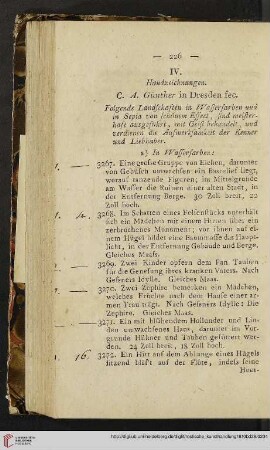 — 226 —
IV.
Handzeichnungen.
C. A. Günther in Dresden fec.
Folgende Landschaften in Wasserfarben und
in Sepia von schönem Effect, sind meister-
haft ausgeführt, mit Geist behandelt, und
verdienen die Aufmerksamkeit der Kenner
und Liebhaber.
a) In Wasserfarben:
3267. Eine große Gruppe von Eichen, darunter
von Gebüsch umwachsen ein Bauernhof liegt,
worauf tanzende Figuren; im Mittelgrunde
am Wasser die Ruinen einer alten Stadt, in
der Entfernung Berge. 30 Zoll breit, 22
Zoll hoch.
1. 4. 3268. Im Schatten eines Felsenstücks unterhält
sich ein Mädchen mit einem Hirten über ein
zerbrochenes Monument; vor ihnen auf ei-
nem Hügel bildet eine Baummasse das Haupt-
licht, in der Entfernung Gebäude und Berge.
Gleiches Maaß.
3269. Zwei Kinder opfern dem Pan Tauben
für die Genesung ihres kranken Vaters. Nach
Geßners Idylle. Gleiches Maas.
3270. Zwei Zephire bemerken ein Mädchen,
welches Früchte nach dem Hause einer ar-
men Frau trägt. Nach Geßners Idylle: Die
Zephire. Gleiches Maas.
3271. Ein mit blühendem Hollunder und Lin-
den umwachsenes Haus, darunter im Vor-
grunde Hühner und Tauben gefüttert wer-
den. 24 Zoll breit, 18 Zoll hoch.
1. 16. 3272. Ein Hirt auf dem Abhange eines Hügels
sitzend bläst auf der Flöte, indeß seine
Heer-